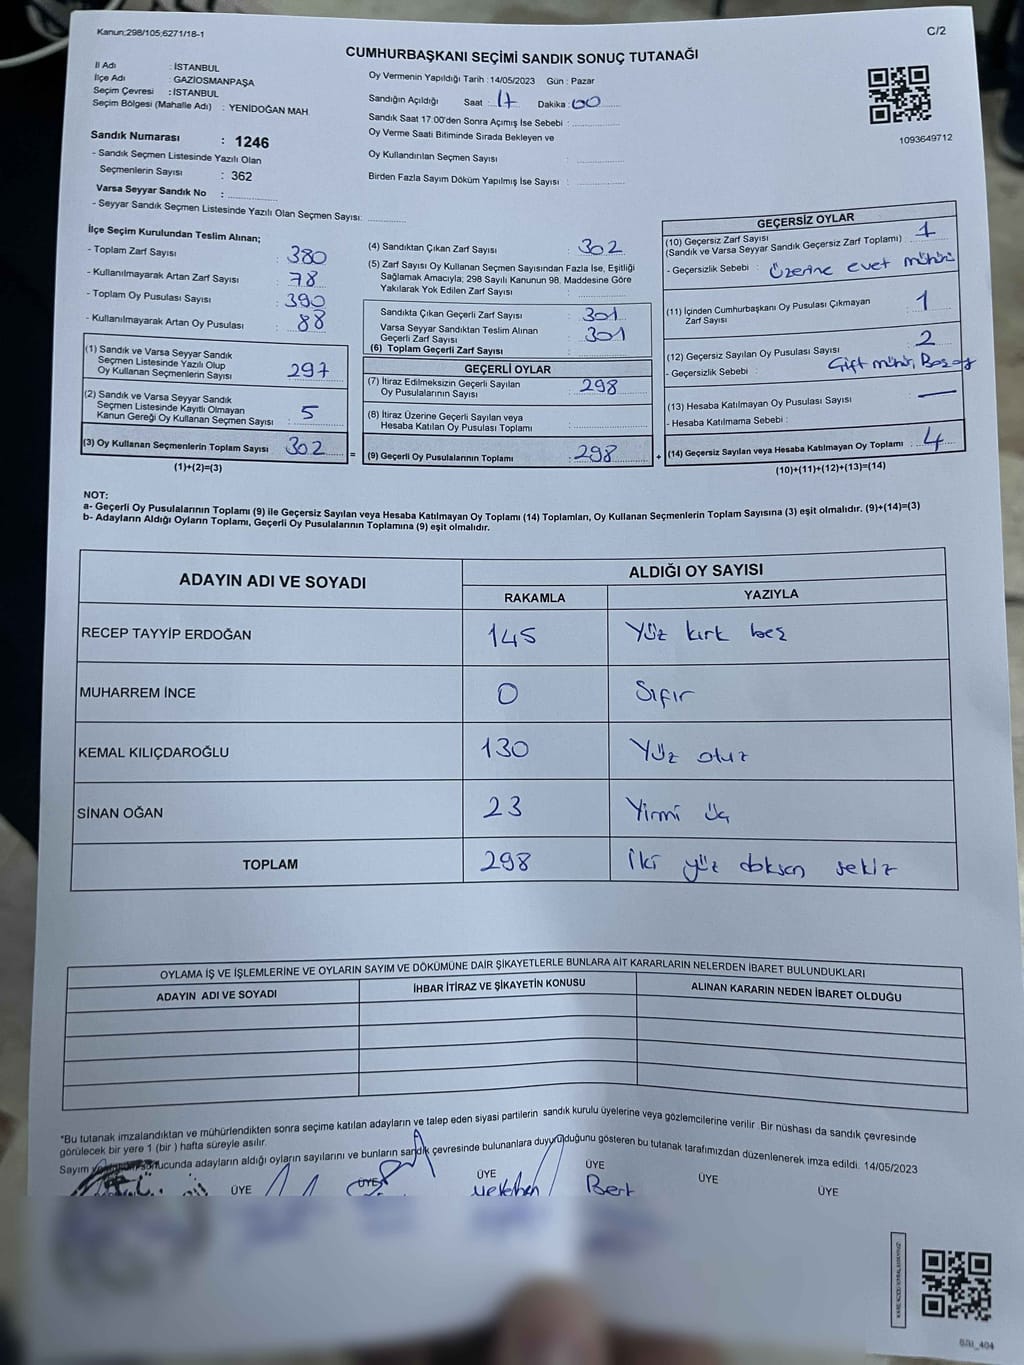 Kanun:298/105;6271/18-1
C/2
CUMHURBAŞKANI SEÇİMİ SANDIK SONUÇ TUTANAĞI
İl Adı : İSTANBUL
İlçe Adı : GAZİOSMANPAŞA
Seçim Çevresi : İSTANBUL
Seçim Bölgesi (Mahalle Adı) : YENİDOĞAN MAH
Sandık Numarası : 1246
- Sandık Seçmen Listesinde Yazılı Olan
Seçmenlerin Sayısı : 362
Varsa Seyyar Sandık No :
- Seyyar Sandık Seçmen Listesinde Yazılı Olan Seçmen Sayısı:
Oy Vermenin Yapıldığı Tarih : 14/05/2023 Gün : Pazar
Sandığın Açıldığı Saat : 17 Dakika : 00
Sandık Saat 17:00'den Sonra Açımış İse Sebebi :
Oy Verme Saati Bitiminde Sırada Bekleyen ve
Oy Kullandırılan Seçmen Sayısı :
Birden Fazla Sayım Döküm Yapılmış İse Sayısı :
1093649712
İlçe Seçim Kurulundan Teslim Alınan;
- Toplam Zarf Sayısı : 380
- Kullanılmayarak Artan Zarf Sayısı : 78
- Toplam Oy Pusulası Sayısı : 390
- Kullanılmayarak Artan Oy Pusulası : 88
(1) Sandık ve Varsa Seyyar Sandık
Seçmen Listesinde Yazılı Olup
Oy Kullanan Seçmenlerin Sayısı : 297
(2) Sandık ve Varsa Seyyar Sandık
Seçmen Listesinde Kayıtlı Olmayan
Kanun Gereği Oy Kullanan Seçmen Sayısı : 5
(3) Oy Kullanan Seçmenlerin Toplam Sayısı : 302
(1)+(2)=(3)
=
(4) Sandıktan Çıkan Zarf Sayısı : 302
(5) Zarf Sayısı Oy Kullanan Seçmen Sayısından Fazla İse, Eşitliği
Sağlamak Amacıyla; 298 Sayılı Kanunun 98. Maddesine Göre
Yakılarak Yok Edilen Zarf Sayısı :
Sandıkta Çıkan Geçerli Zarf Sayısı : 301
Varsa Seyyar Sandıktan Teslim Alınan
Geçerli Zarf Sayısı : 301
(6) Toplam Geçerli Zarf Sayısı :
GEÇERLİ OYLAR
(7) İtiraz Edilmeksizin Geçerli Sayılan
Oy Pusulalarının Sayısı : 298
(8) İtiraz Üzerine Geçerli Sayılan veya
Hesaba Katılan Oy Pusulası Toplamı :
(9) Geçerli Oy Pusulalarının Toplamı : 298
+
GEÇERSİZ OYLAR
(10) Geçersiz Zarf Sayısı
(Sandık ve Varsa Seyyar Sandık Geçersiz Zarf Toplamı) : 1
- Geçersizlik Sebebi : üzerine evet mührü
(11) İçinden Cumhurbaşkanı Oy Pusulası Çıkmayan
Zarf Sayısı : 1
(12) Geçersiz Sayılan Oy Pusulası Sayısı : 2
- Geçersizlik Sebebi : Çift mühür, Boş oy
(13) Hesaba Katılmayan Oy Pusulası Sayısı : —
- Hesaba Katılmama Sebebi :
(14) Geçersiz Sayılan veya Hesaba Katılmayan Oy Toplamı : 4
(10)+(11)+(12)+(13)=(14)
NOT:
a- Geçerli Oy Pusulalarının Toplamı (9) ile Geçersiz Sayılan veya Hesaba Katılmayan Oy Toplamı (14) Toplamları, Oy Kullanan Seçmenlerin Toplam Sayısına (3) eşit olmalıdır. (9)+(14)=(3)
b- Adayların Aldığı Oyların Toplamı, Geçerli Oy Pusulalarının Toplamına (9) eşit olmalıdır.
ADAYIN ADI VE SOYADI
ALDIĞI OY SAYISI
RAKAMLA YAZIYLA
RECEP TAYYİP ERDOĞAN 145 Yüz kırk beş
MUHARREM İNCE 0 Sıfır
KEMAL KILIÇDAROĞLU 130 Yüz otuz
SİNAN OĞAN 23 Yirmi üç
TOPLAM 298 iki yüz doksan sekiz
OYLAMA İŞ VE İŞLEMLERİNE VE OYLARIN SAYIM VE DÖKÜMÜNE DAİR ŞİKAYETLERLE BUNLARA AİT KARARLARIN NELERDEN İBARET BULUNDUKLARI
ADAYIN ADI VE SOYADI İHBAR İTİRAZ VE ŞİKAYETİN KONUSU ALINAN KARARIN NEDEN İBARET OLDUĞU
*Bu tutanak imzalandıktan ve mühürlendikten sonra seçime katılan adayların ve talep eden siyasi partilerin sandık kurulu üyelerine veya gözlemcilerine verilir. Bir nüshası da sandık çevresinde
görülecek bir yere 1 (bir) hafta süreyle asılır.
Sayım sonucunda adayların aldığı oyların sayılarını ve bunların sandık çevresinde bulunanlara duyrulduğunu gösteren bu tutanak tarafımızdan düzenlenerek imza edildi. 14/05/2023
ÜYE ÜYE ÜYE ÜYE ÜYE ÜYE